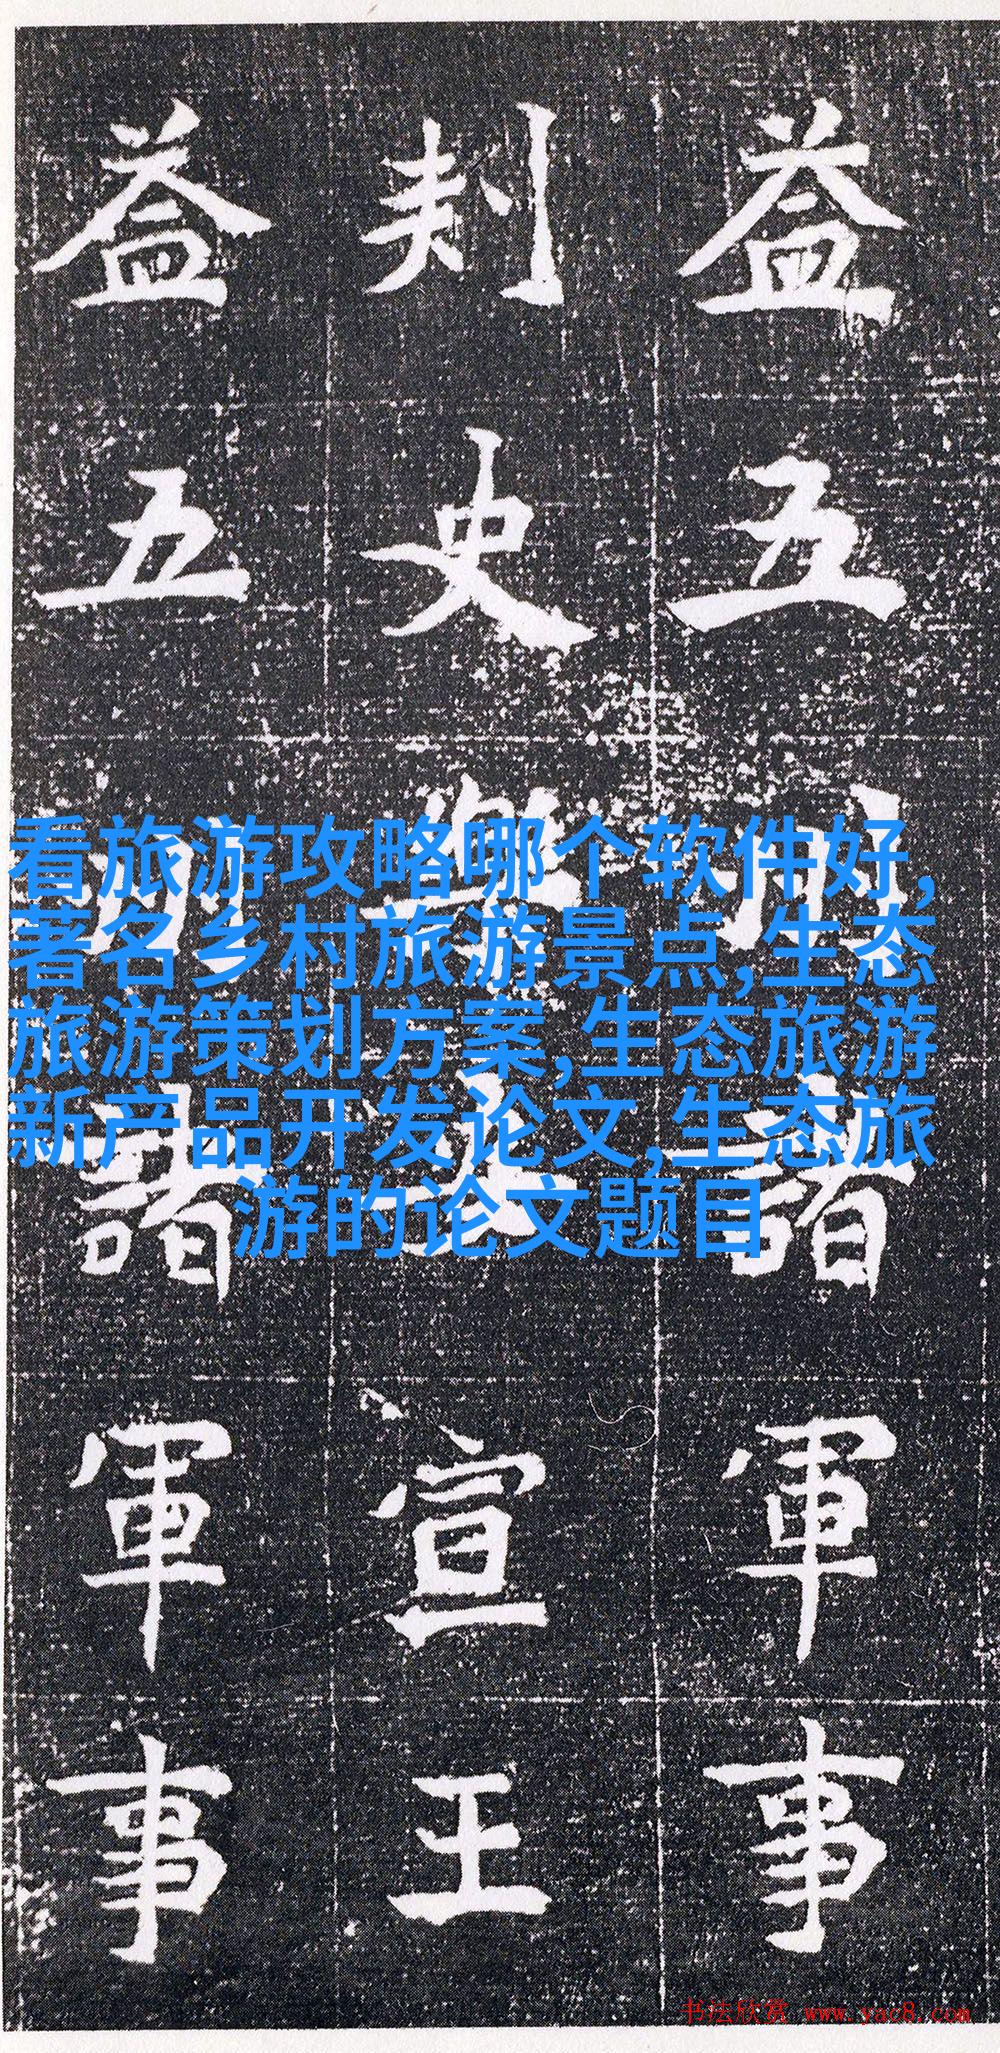 益五州諸軍事
刾史宣王
益五州諸軍事
看旅游攻略哪个软件好,
著名乡村旅游景点,生态
旅游策划方案,生态旅游
新产品开发论文,生态旅
游的论文题目
书法欣赏 www.yac8.com